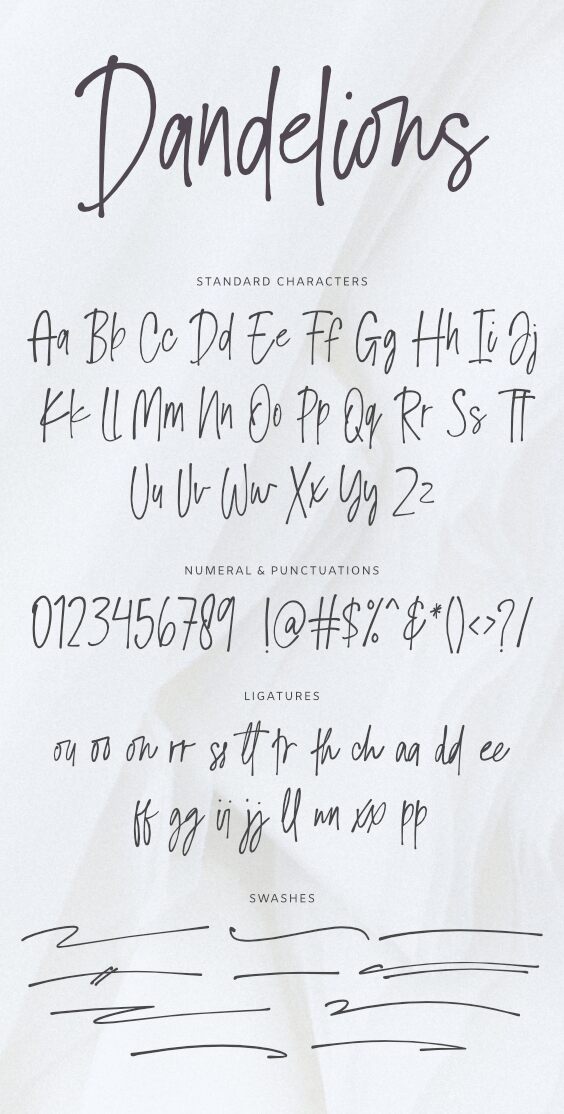 Dandelions
STANDARD CHARACTERS
Aa Bb Cc Dd Ee Ff Gg Hh Ii Jj
Kk Ll Mm Nn Oo Pp Qq Rr Ss Tt
Uu Vv Ww Xx Yy Zz
NUMERAL & PUNCTUATIONS
0123456789 !@#$%^&*()<>?/
LIGATURES
ou oo on rr ss tt tr th ch aa dd ee
ff gg ii jj ll nn xo pp
SWASHES